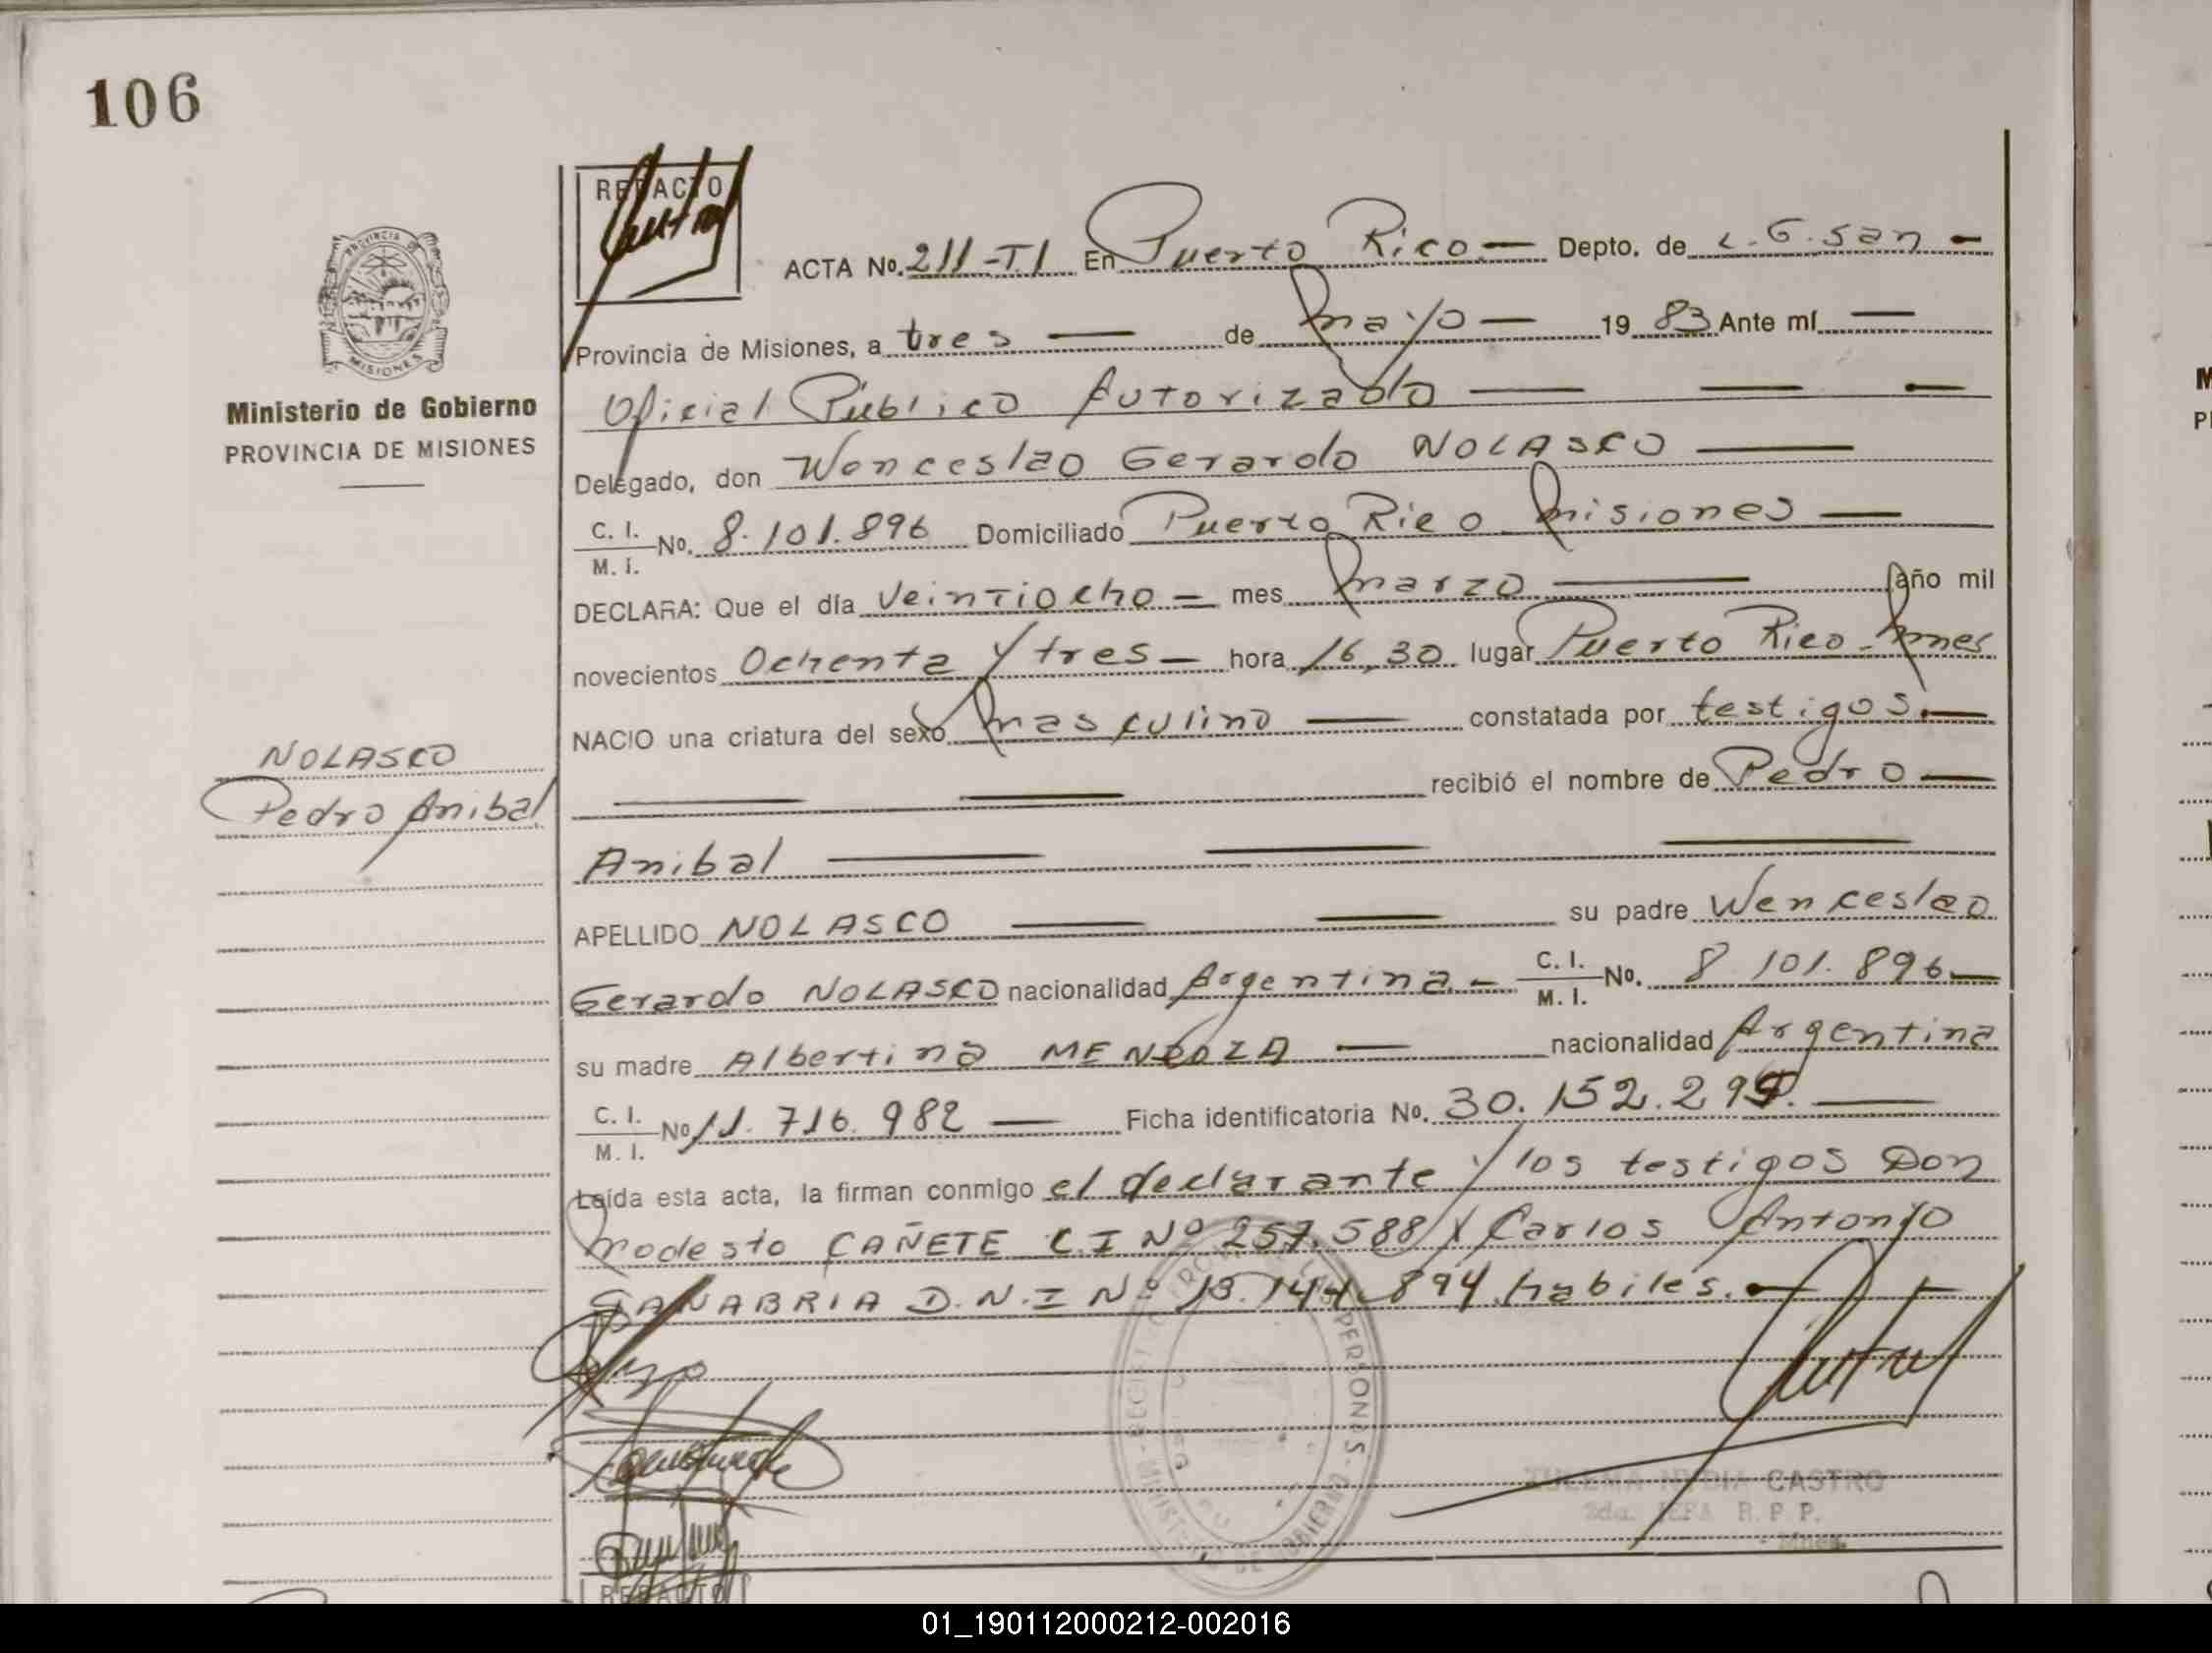 106
REDACTO
ACTA No. 211-T.I En Puerto Rico — Depto. de L.G.San —
Provincia de Misiones, a tres — de mayo — 19 83 Ante mí —
Oficial Público Autorizado — — —
Delegado, don Wenceslao Gerardo NOLASCO —
C. I. / M. I. No. 8.101.896 Domiciliado Puerto Rico misiones —
DECLARA: Que el día Veintiocho — mes marzo — año mil
novecientos Ochenta y tres — hora 16,30 lugar Puerto Rico - Mnes
NACIO una criatura del sexo masculino — constatada por testigos. —
— — recibió el nombre de Pedro —
Anibal — — —
APELLIDO NOLASCO — — su padre Wenceslao
Gerardo NOLASCO nacionalidad Argentina — C. I. / M. I. No. 8.101.896 —
su madre Albertina MENDOZA — nacionalidad Argentina
C. I. / M. I. No 11.716.982 — Ficha identificatoria No. 30.152.29
Leída esta acta, la firman conmigo el declarante y los testigos Don
Modesto CAÑETE C.I Nº 257.588 y Carlos Antonio
SANABRIA D.N.I Nº 13.144.894 habiles. —
ZULEMA NYDIA CASTRO
2da. JEFA R. P. P.
Mnes.
REDACTO
PROVINCIA DE MISIONES
Ministerio de Gobierno
PROVINCIA DE MISIONES
NOLASCO
Pedro Anibal
01_190112000212-002016